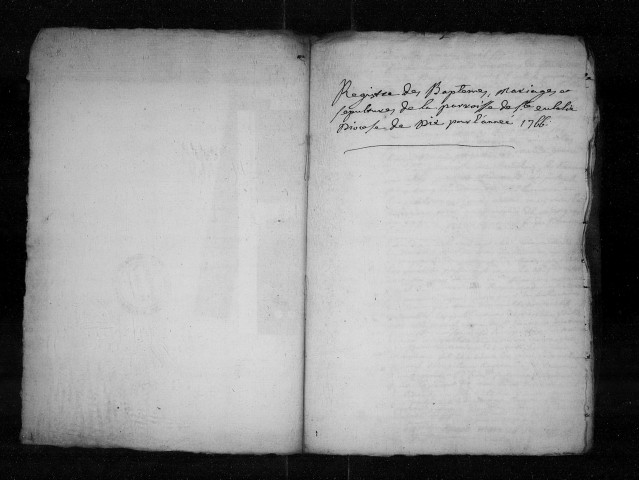 Registre des Baptemes, mariages et
sepultures de la parroisse de Ste eulalie
Diocese de Die pour l'année 1766.